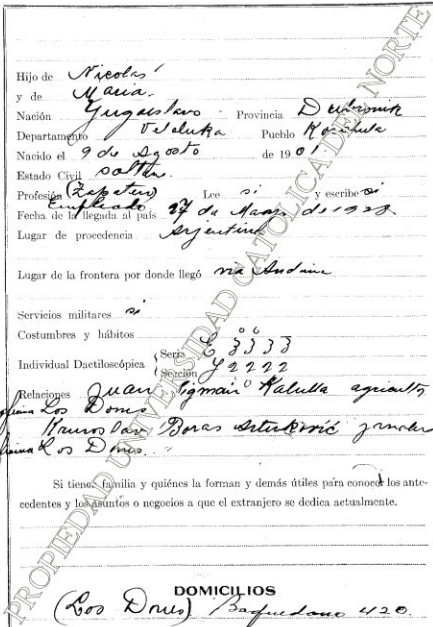 Hijo de Nicolás
y de María
Nación Yugoeslavo Provincia Dubronik
Departamento Veleluka Pueblo Korchula
Nacido el 9 de Agosto de 1901
Estado Civil Solter.
Profesión (Zapatero) Empleado Lee si y escribe si
Fecha de la llegada al país 27 de Marzo de 1928
Lugar de procedencia Argentina
Lugar de la frontera por donde llegó via Andina
Servicios militares si
Costumbres y hábitos
Individual Dactiloscópica Serie E 3333
Sección Y 2222
Relaciones Juan Sigmair Kalulla agricultor
oficina Los Dones
Boras
oficina Los Dones.
Si tiene familia y quiénes la forman y demás útiles para conocer los ante-
cedentes y los asuntos o negocios a que el extranjero se dedica actualmente.
DOMICILIOS
(Los Dones) Baquedano 420.
PROPIEDAD UNIVERSIDAD CATOLICA DEL NORTE